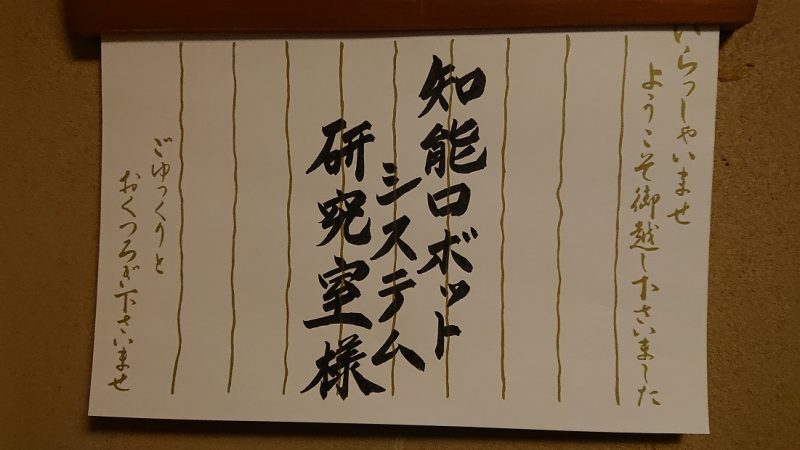 いらっしゃいませ
ようこそ御越し下さいました
知能ロボット
システム
研究室様
ごゆっくりと
おくつろぎ下さいませ